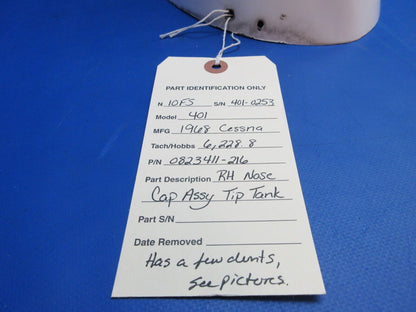 PART IDENTIFICATION ONLY
N 10FS S/N 401-0253
Model 401
MFG 1968 Cessna
Tach/Hobbs 6,228.8
P/N 0823411-216
Part Description RH Nose
Cap Assy Tip Tank
Part S/N
Date Removed
Has a few dents,
see pictures.